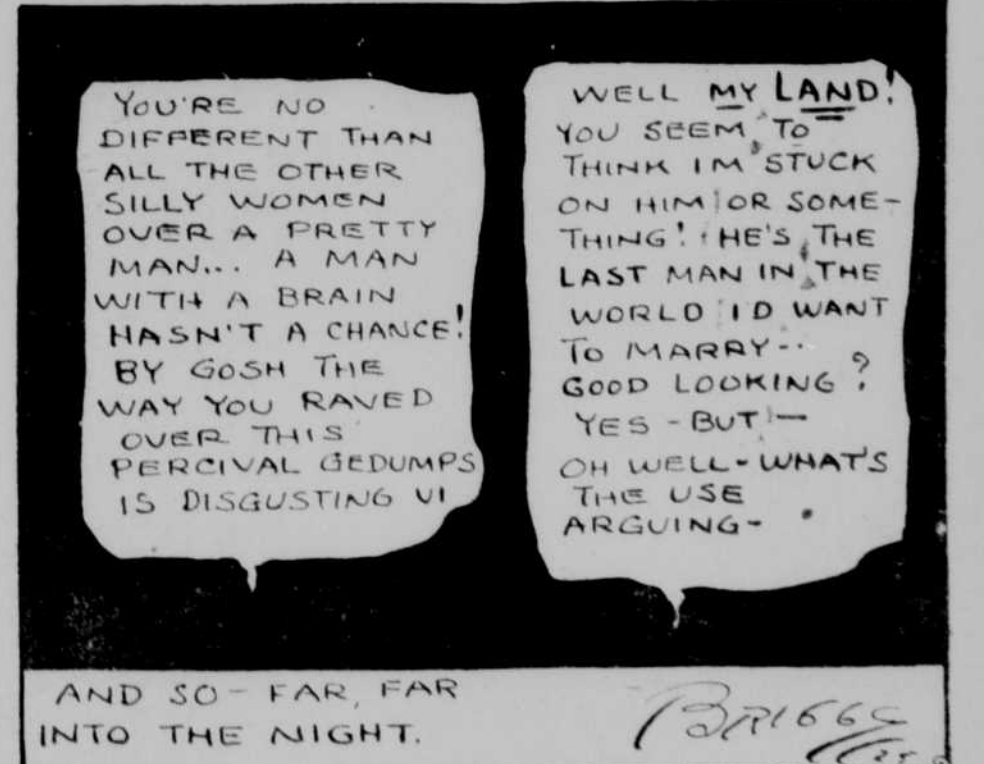 YOU'RE NO
DIFFERENT THAN
ALL THE OTHER
SILLY WOMEN
OVER A PRETTY
MAN... A MAN
WITH A BRAIN
HASN'T A CHANCE!
BY GOSH THE
WAY YOU RAVED
OVER THIS
PERCIVAL GEDUMPS
IS DISGUSTING VI
WELL MY LAND!
YOU SEEM TO
THINK IM STUCK
ON HIM OR SOME-
THING! HE'S THE
LAST MAN IN THE
WORLD I'D WANT
TO MARRY--
GOOD LOOKING?
YES - BUT -
OH WELL - WHAT'S
THE USE
ARGUING-
AND SO - FAR, FAR
INTO THE NIGHT.
BRIGGS